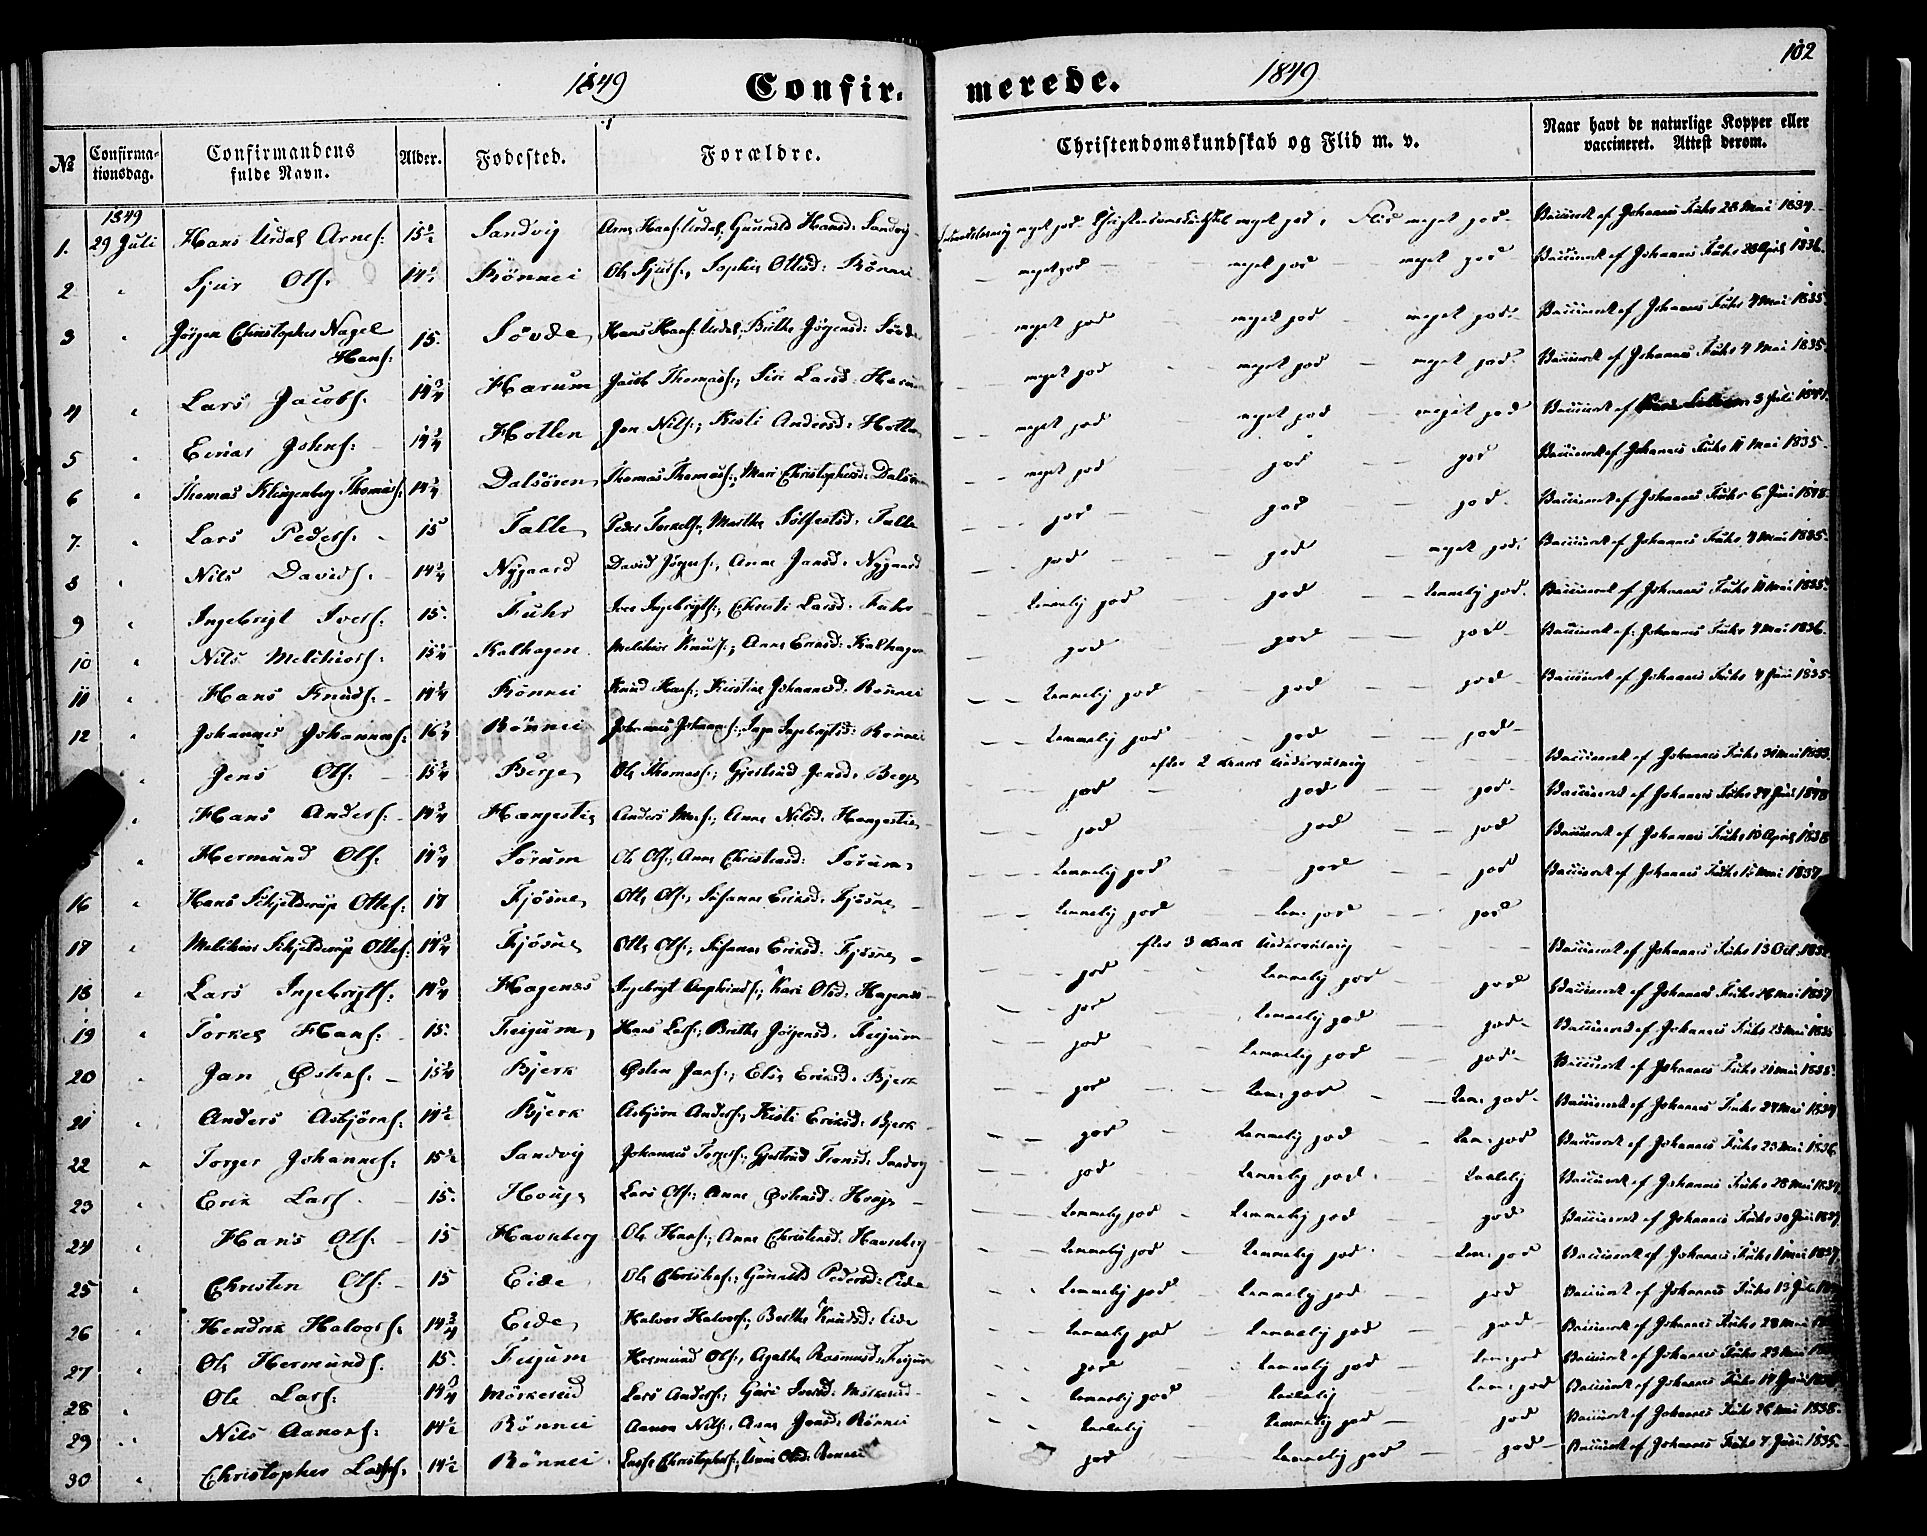 102
1849 Confirmerede. 1849
№ Confirmationsdag. Confirmandens fulde Navn. Alder. Fødested. Forældre. Christendomskundskab og Flid m. v. Naar havt de naturlige Kopper eller vaccineret. Attest derom.
1849
1. 29 Juli Hans Urdal Arnes: 15½ Sandvig Arne Hans: Urdal, Gunnild Hansd: Sandvig meget god Christendomskundskab meget god, Flid meget god Vaccineret af Johannes Fuhr 28 Mai 1834
2 " Sjur Ols: 14½ Rönnei Ole Sjurs:, Sophie Ottesd: Rönnei meget god meget god meget god Vaccineret af Johannes Fuhr 28 April 1836
3 " Jörgen Christopher Nagel Hans: 15 Søvde Hans Hans: Urdal, Brithe Jörgensd: Søvde meget god meget god meget god Vaccineret af Johannes Fuhr 4 Mai 1835
4 " Lars Jacobs: 14¾ Harum Jacob Thomass:, Siri Larsd: Harum meget god meget god meget god Vaccineret af Johannes Fuhr 4 Mai 1835
5 " Einar Johns: 14¾ Hotlen Jon Nils:, Kisti Andersd: Hotlen meget god meget god meget god Vaccineret af 3 Juli 1841
6 " Thomas Klingenberg Thomass: 14¾ Dalsören Thomas Thomass:, Mari Christophersd: Dalsören meget god god god Vaccineret af Johannes Fuhr 11 Mai 1835
7. " Lars Peders: 15 Talle Peder Torkels:, Marthe Sölfestsd: Talle god god god Vaccineret af Johannes Fuhr 6 Juni 1848
8 " Nils Davids: 14¾ Nygaard David Jörgens:, Anne Jansd: Nygaard god god meget god Vaccineret af Johannes Fuhr 4 Mai 1835
9 " Ingebrigt Ivers: 15. Fuhr Iver Ingebrigts:, Christi Larsd: Fuhr temmelig god god temmelig god Vaccineret af Johannes Fuhr 11 Mai 1835
10 " Nils Melchiors: 15¼ Kalhagen Melchior Knuds:, Anne Ericsd: Kalhagen god god god Vaccineret af Johannes Fuhr 4 Mai 1836
11 " Hans Knuds: 14¾ Rönnei Knud Hans:, Kirstine Johannesd: Rönnei temmelig god god god Vaccineret af Johannes Fuhr 4 Juni 1835
12 " Johannes Johanness: 16¾ Rönnei Johannes Johanness:, Inga Ingebrigtsd: Rönnei temmelig god god god
efter 2 Aars Underviisning
" Jens Ols: 15¾ Berge Ole Thomass:, Gjertrud Jensd: Berge god god god Vaccineret af Johannes Fuhr 31 Mai 1833
" Hans Anders: 14¾ Hangestie Anders Mons:, Anne Nilsd: Hangestie god god god Vaccineret af Johannes Fuhr 24 Juni 1848
" Hermund Ols: 14¾ Sörum Ole Ols:, Anne Christensd: Sörum temmelig god god god Vaccineret af Johannes Fuhr 10 April 1838
16 " Hans Schjelderup Ottes: 17 Fjösne Otte Ols:, Susanne Eriksd: Fjösne temmelig god tem: god god Vaccineret af Johannes Fuhr 15 Mai 1837
efter 3 Aars Underviisning
17 " Melchior Schjelderup Ottes: 14¾ Fjösne Otte Ols:, Susanne Eriksd: Fjösne god temmelig god god Vaccineret af Johannes Fuhr 13 Oct
18 " Lars Ingebrigts: 14¾ Hagenæs Ingebrigt, Kari Olsd: Hagenæs god temmelig god god Vaccineret af Johannes Fuhr 26 Mai 1837
19 " Torkel Hans: 15. Feigum Hans Lars:, Brithe Jörgensd: Feigum god temmelig god god Vaccineret af Johannes Fuhr 23 Mai
20 " Jan Østens: 15¾ Bjerk Østen Jans:, Elie Eriksd: Bjerk god tem: god tem: god Vaccineret af Johannes Fuhr 21 Mai 1835
21 " Anders Asbjörns: 14½ Bjerk Asbjörn Anders:, Kisti Eriksd: Bjerk god temmelig god tem: god Vaccineret af Johannes Fuhr 24 Mai 1834
22 " Torger Johannes: 15½ Sandvig Johannes Torgers:, Gjertrud Tronsd: Sandvig god temmelig god taalelig Vaccineret af Johannes Fuhr 23 Mai 1836
23 " Erik Lars: 15. Houge Lars Ols:, Anne Østensd: Houge temmelig god temmelig god god Vaccineret af Johannes Fuhr 28 Mai
24 " Hans Ols: 15 Havneberg Ole Hans:, Anne Christensd: Havneberg temmelig god temmelig god tem: god Vaccineret af Johannes Fuhr 30 Juni
25 " Christen Ols: 15 Eide Ole Christens:, Gunnild Pedersd: Eide temmelig god temmelig god god Vaccineret af Johannes Fuhr 1 Mai 1837
26 " Hendrik Halvors: 14¾ Eide Halvor Halvors:, Berthe Knudsd: Eide temmelig god temmelig god god Vaccineret af Johannes Fuhr 13 Juli
27 " Ole Hermunds: 15. Feigum Hermund Ols:, Agathe Rasmusd: Feigum god temmelig god tem: god Vaccineret af Johannes Fuhr 28 Mai
28 " Ole Lars: 14¾ Mörkereid Lars Anders:, Guri Iversd: Mörkereid temmelig god taalelig tem: god Vaccineret af Johannes Fuhr 23 Mai
29 " Nils Aamons: 14½ Rönnei Aamon Nils:, Anne Jensd: Rönnei taalelig temmelig god god Vaccineret af Johannes Fuhr 26 Mai 1835
30 " Christopher Lasses: 14½ Rönnei Lasse Christophers:, Unni Olsd: Rönnei god temmelig god god Vaccineret af Johannes Fuhr 7 Juni 1835